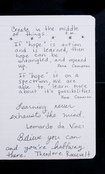 Create in the middle
of things
If "hope" is action
and is learned, then
hope can be
untangled, and opened
up.
If "hope" is on a
specimen, we are
able to learn more
about its possibilities
Learning never
exhausts the mind
Leonardo da Vinci
Believe you can
and you're halfway
there. Theodore Roosevelt